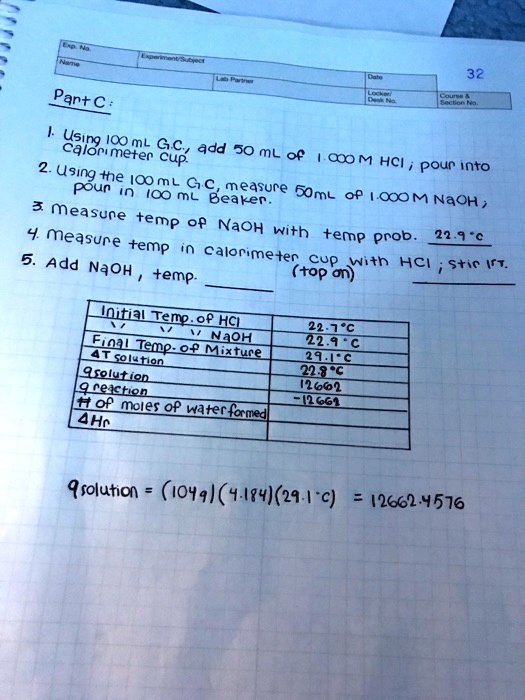 Exp. No.
Experiment/Subject
32
Name
Lab Partner
Date
Locker/
Desk No.
Course &
Section No.
Part C:
1. Using 100 mL G.C., add 50 mL of 1.000 M HCl ; pour into
calorimeter cup.
2. Using the 100 mL G.C, measure 50mL of 1.000 M NaOH ;
pour in 100 mL Beaker.
3. measure temp of NaOH with temp prob. 22.9 °C
4. measure temp in calorimeter cup with HCl ; stir 1st.
(top on)
5. Add NaOH , temp.
Initial Temp. of HCl 22.7°C
" " " NaOH 22.9 °C
Final Temp. of Mixture 29.1°C
ΔT solution 22.8°C
qsolution 12662
qreaction -12662
# of moles of water formed
ΔHn
qsolution = (104g)(4.184)(29.1°C) = 12662.4576